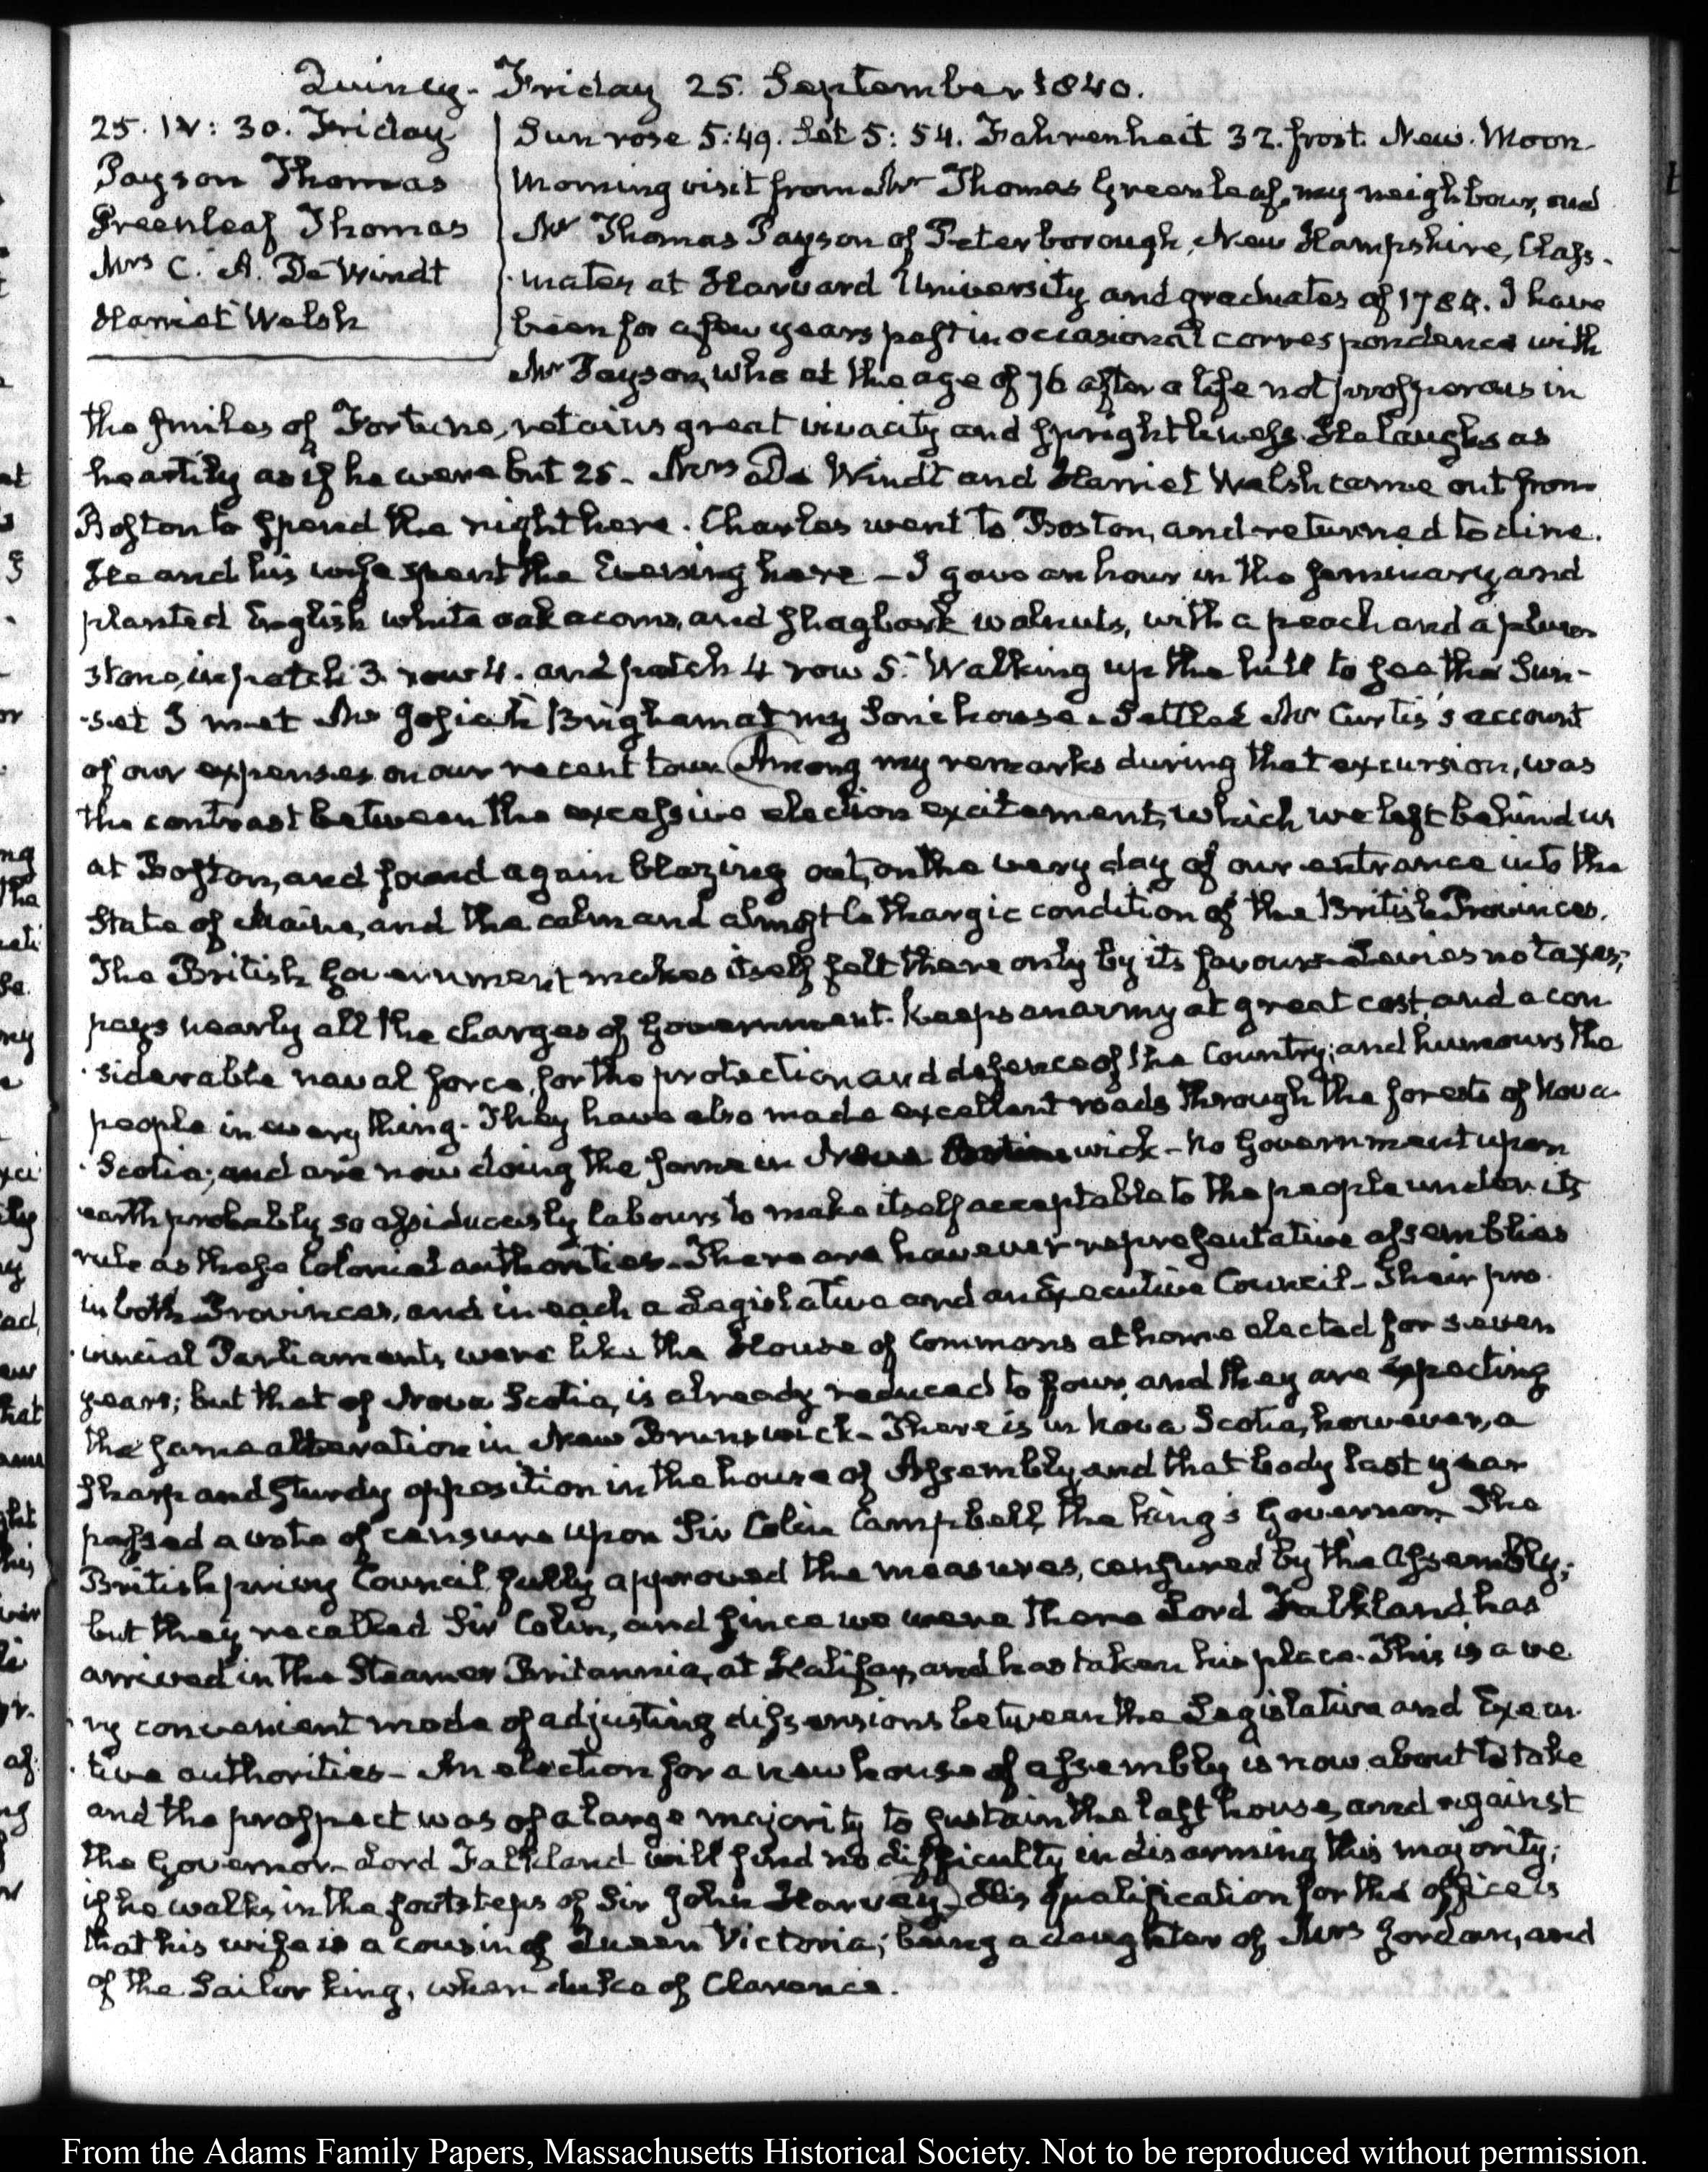 Quincy. Friday 25. September 1840.
25. IV: 30. Friday
Payson Thomas
Greenleaf Thomas
Mrs C. A. De Windt
Harriet Welsh
Sun rose 5:49. Set 5:54. Fahrenheit 32. frost. New Moon
Morning visit from Mr Thomas Greenleaf, my neighbour, and
Mr Thomas Payson of Peterborough, New Hampshire, Class-
mates at Harvard University and graduates of 1784. I have
been for a few years past in occasional correspondence with
Mr Payson, who at the age of 76 after a life not prosperous in
the smiles of Fortune, retains great vivacity and sprightliness. He laughs as
heartily as if he were but 25 - Mrs De Windt and Harriet Welsh came out from
Boston to spend the night here. Charles went to Boston, and returned to dine.
He and his wife spent the Evening here - I gave an hour in the seminary and
planted English white oak acorns, and shagbark walnuts, with a peach and a plum
stone, in patch 3. row 4. and patch 4 row 5. Walking up the hill to see the Sun-
-set I met Mr Josiah Brigham at my Son's house. Settled Mr Curtis's account
of our expenses on our recent tour. Among my remarks during that excursion, was
the contrast between the excessive election excitement, which we left behind us
at Boston, and found again blazing out, on the very day of our entrance into the
State of Maine, and the calm and almost lethargic condition of the British Provinces.
The British Government makes itself felt there only by its favours - Levies no taxes;
pays nearly all the charges of Government. Keeps an army at great cost, and a con
-siderable naval force, for the protection and defence of the Country; and humours the
people in every thing. They have also made excellent roads through the forests of Nova-
-Scotia; and are now doing the same in New wick - No Government upon
earth probably so assiduously labours to make itself acceptable to the people under its
rule as these Colonial authorities. There are however representative assemblies
in both Provinces, and in each a Legislative and an Executive Council - Their pro-
-vincial Parliaments, were like the House of Commons at home elected for seven
years; but that of Nova Scotia, is already reduced to four, and they are expecting
the same alteration in New Brunswick - There is in Nova Scotia, however, a
sharp and sturdy opposition in the house of Assembly, and that body last year
passed a vote of censure upon Sir Colin Campbell, the king's Governor. The
British privy Council fully approved the measures, censured by the Assembly;
but they recalled Sir Colin, and since we were there Lord Falkland has
arrived in the Steamer Britannia, at Halifax, and has taken his place. This is a ve
-ry convenient mode of adjusting dissensions between the Legislative and Execu-
-tive authorities - An election for a new house of assembly is now about to take
and the prospect was of a large majority to sustain the last house, and against
the Governor. Lord Falkland will find no difficulty in disarming this majority;
if he walks in the footsteps of Sir John Harvey - His qualification for the office is
that his wife is a cousin of Queen Victoria; being a daughter of Mrs Jordan, and
of the Sailor king, when duke of Clarence.
From the Adams Family Papers, Massachusetts Historical Society. Not to be reproduced without permission.